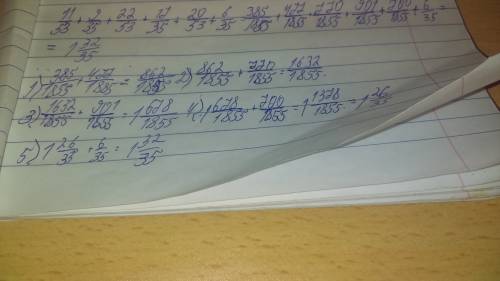 11/53 + 9/35 + 22/53 + 17/35 + 20/53 + 6/35 = 385/1855 + 477/1855 + 770/1855 + 901/1855 + 700/1855 + 6/35 =
= 1 32/35
1) 385/1855 + 477/1855 = 862/1855 2) 862/1855 + 770/1855 = 1632/1855
3) 1632/1855 + 901/1855 = 1 678/1855 4) 1 678/1855 + 700/1855 = 1 1378/1855 = 1 26/35
5) 1 26/35 + 6/35 = 1 32/35